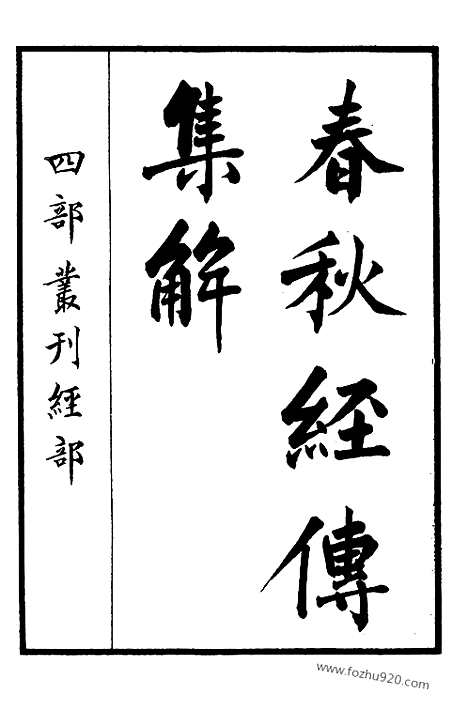 春秋經傳
集解
四部叢刊經部
www.fozhu920.com